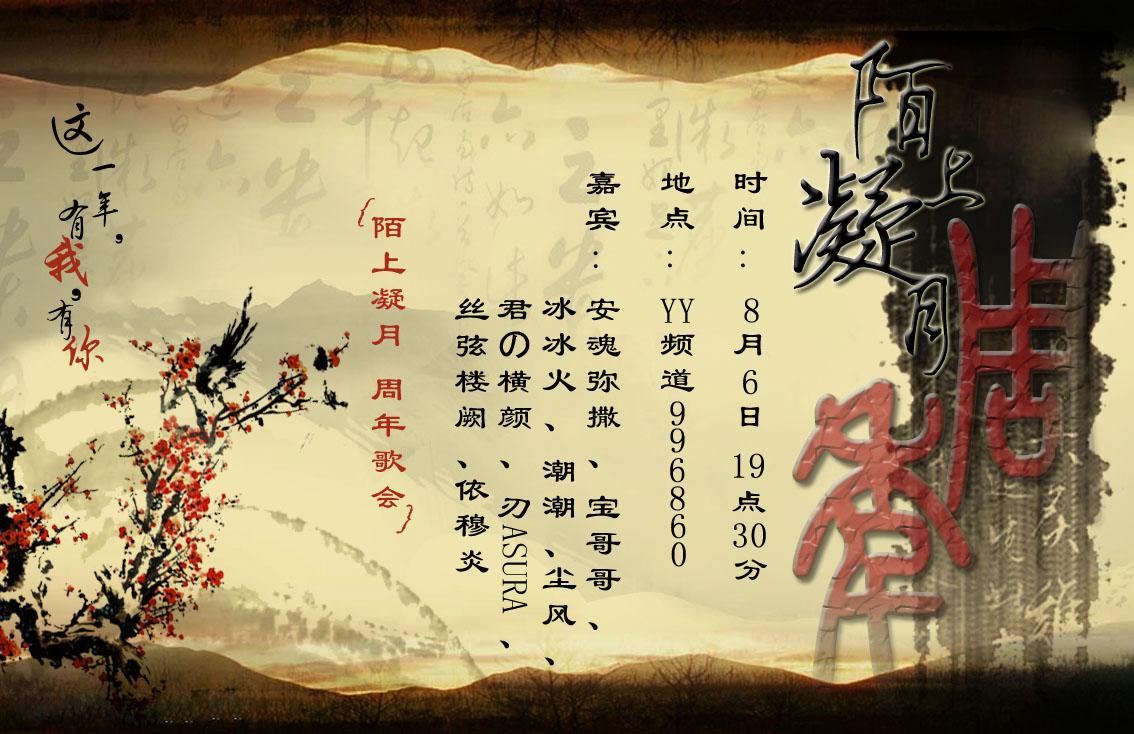 陌上凝月
周年
时间：8月6日 19点30分
地点：YY频道996860
嘉宾：安魂弥撒、宝哥哥、
冰冰火、潮潮、尘风、
君の横颜、刃ASURA、
丝弦楼阙、依穆炎
{陌上凝月 周年歌会}
这一年，
有我，
有你